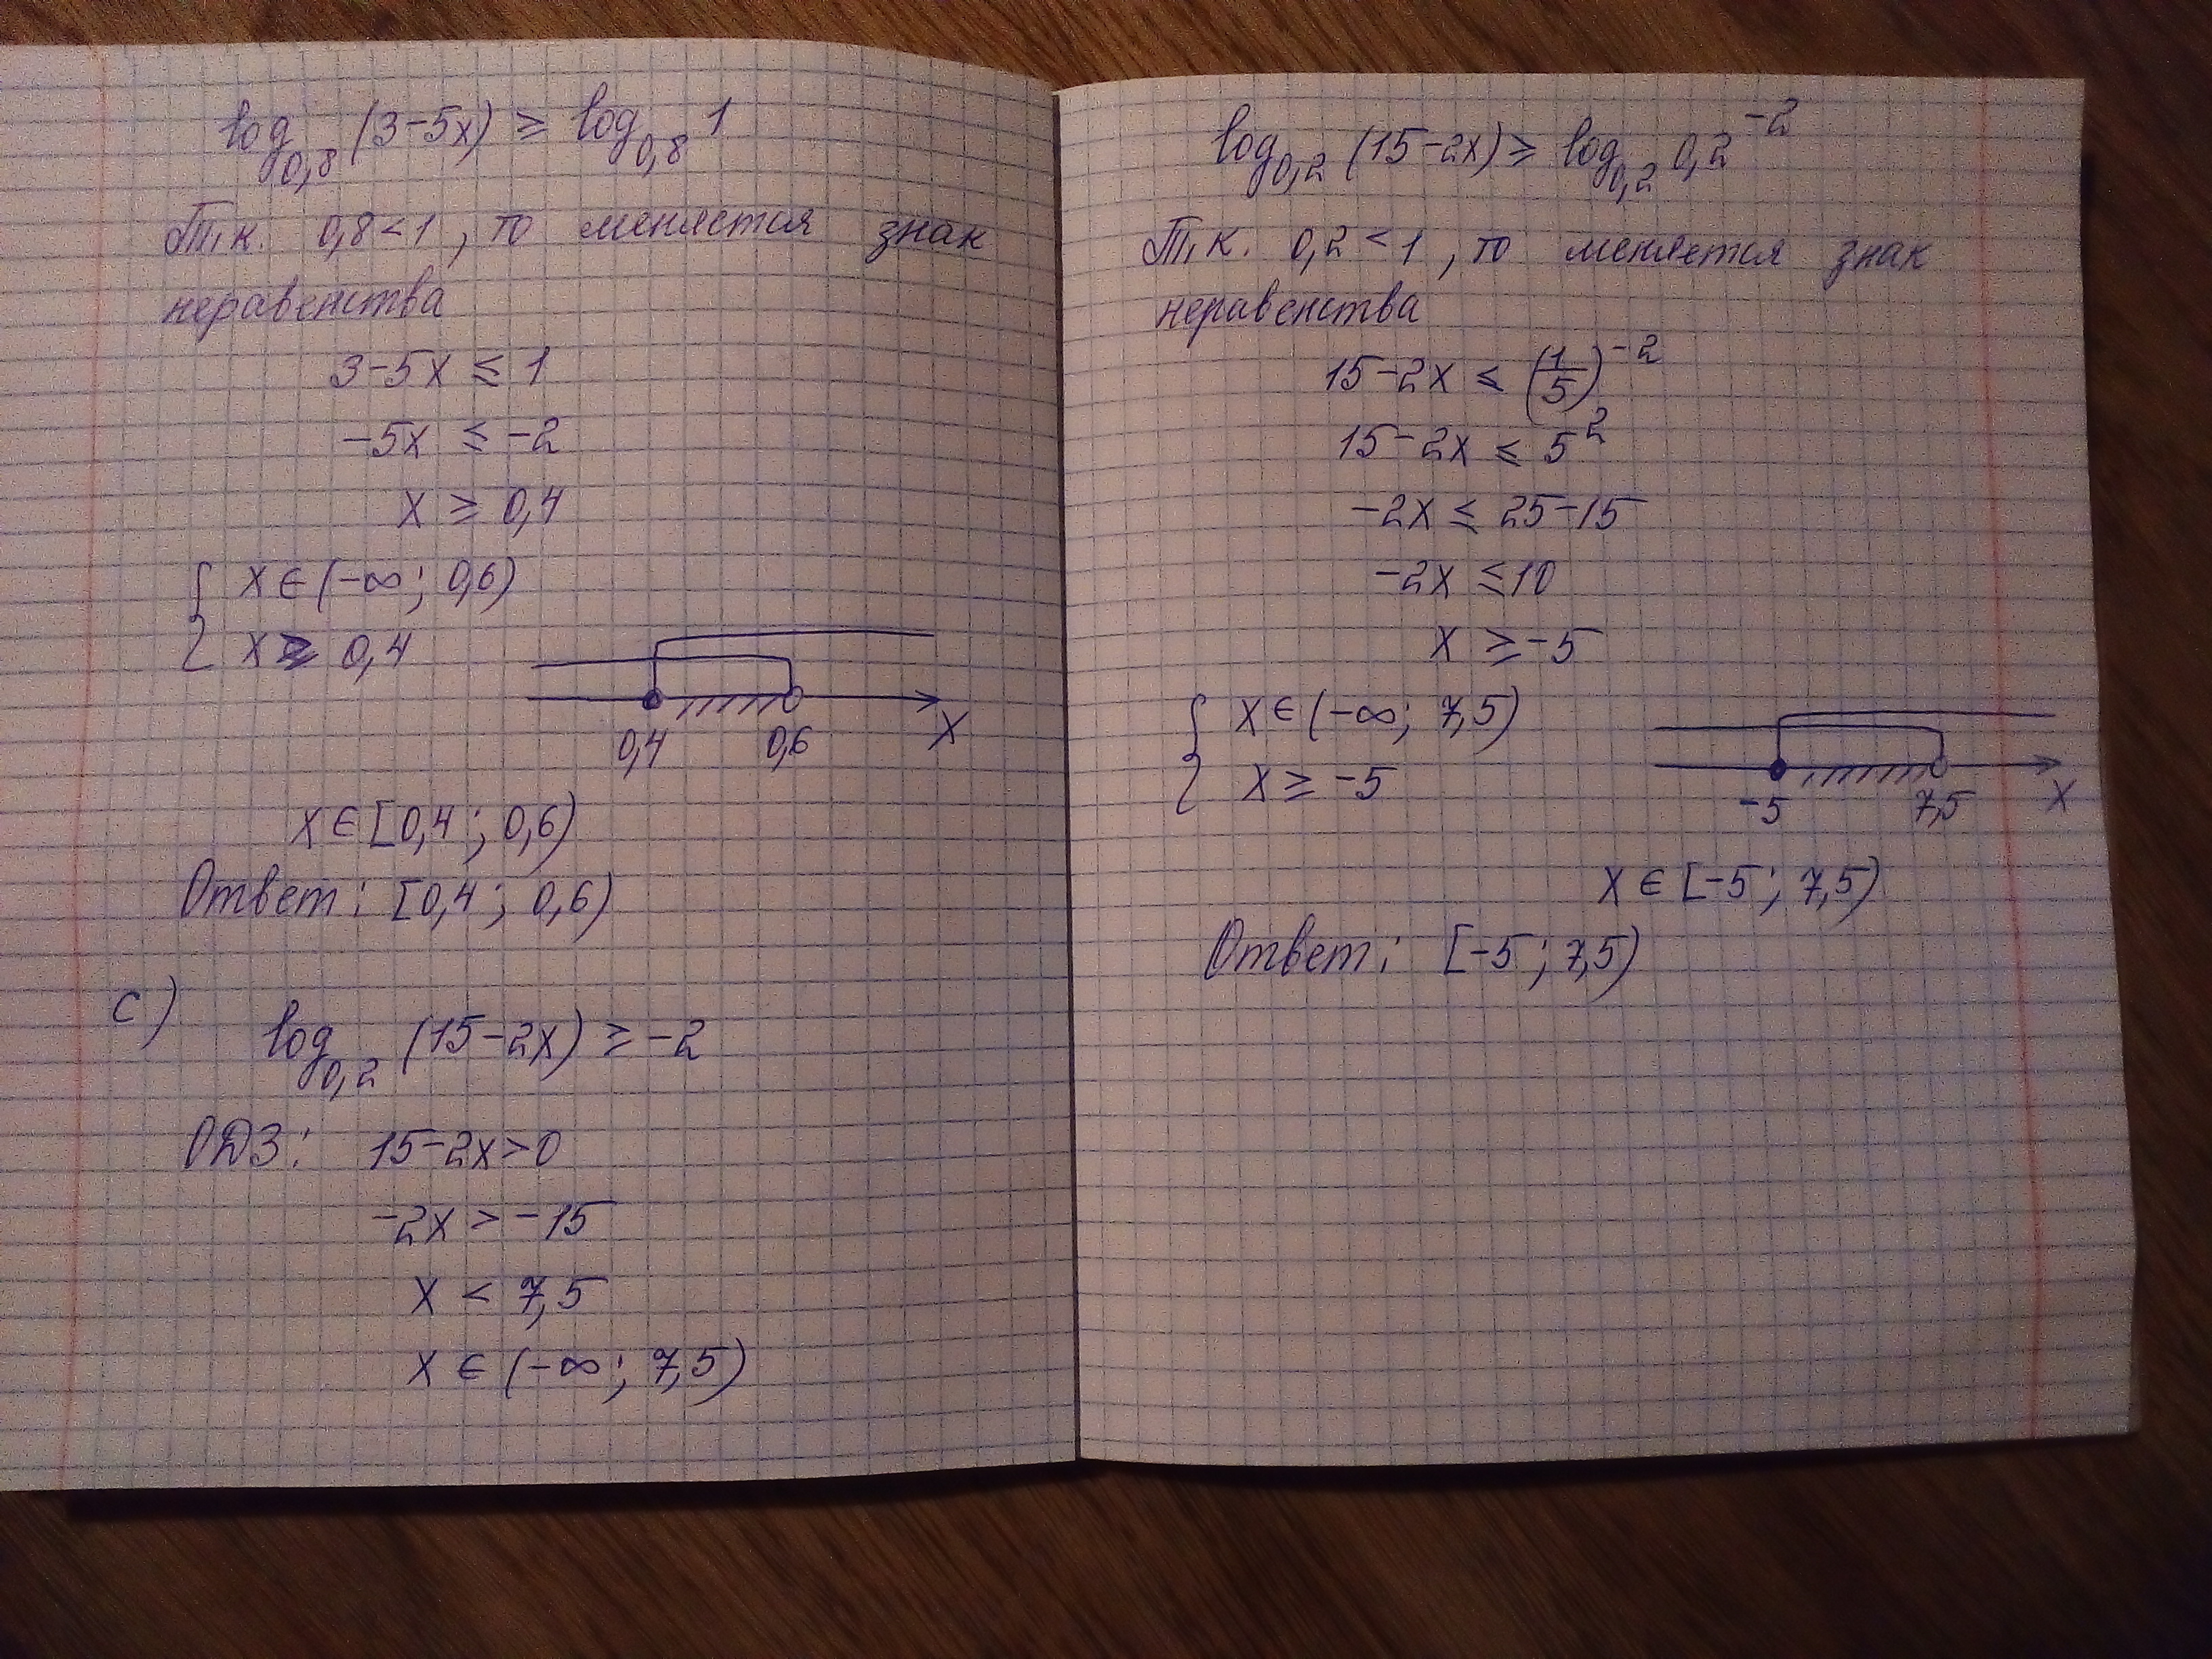 log₀,₈ (3-5x) ≥ log₀,₈ 1
Т.к. 0,8 < 1, то меняется знак
неравенства
3-5x ≤ 1
-5x ≤ -2
x ≥ 0,4
{ x ∈ (-∞; 0,6)
x ≥ 0,4
0,4 0,6 x
x ∈ [0,4; 0,6)
Ответ: [0,4; 0,6)
c)
log₀,₂ (15-2x) ≥ -2
ОДЗ: 15-2x>0
-2x > -15
x < 7,5
x ∈ (-∞; 7,5)
log₀,₂ (15-2x) ≥ log₀,₂ 0,2⁻²
Т.к. 0,2 < 1, то меняется знак
неравенства
15-2x ≤ (1/5)⁻²
15-2x ≤ 5²
-2x ≤ 25-15
-2x ≤ 10
x ≥ -5
{ x ∈ (-∞; 7,5)
x ≥ -5
-5 7,5 x
x ∈ [-5; 7,5)
Ответ: [-5; 7,5)